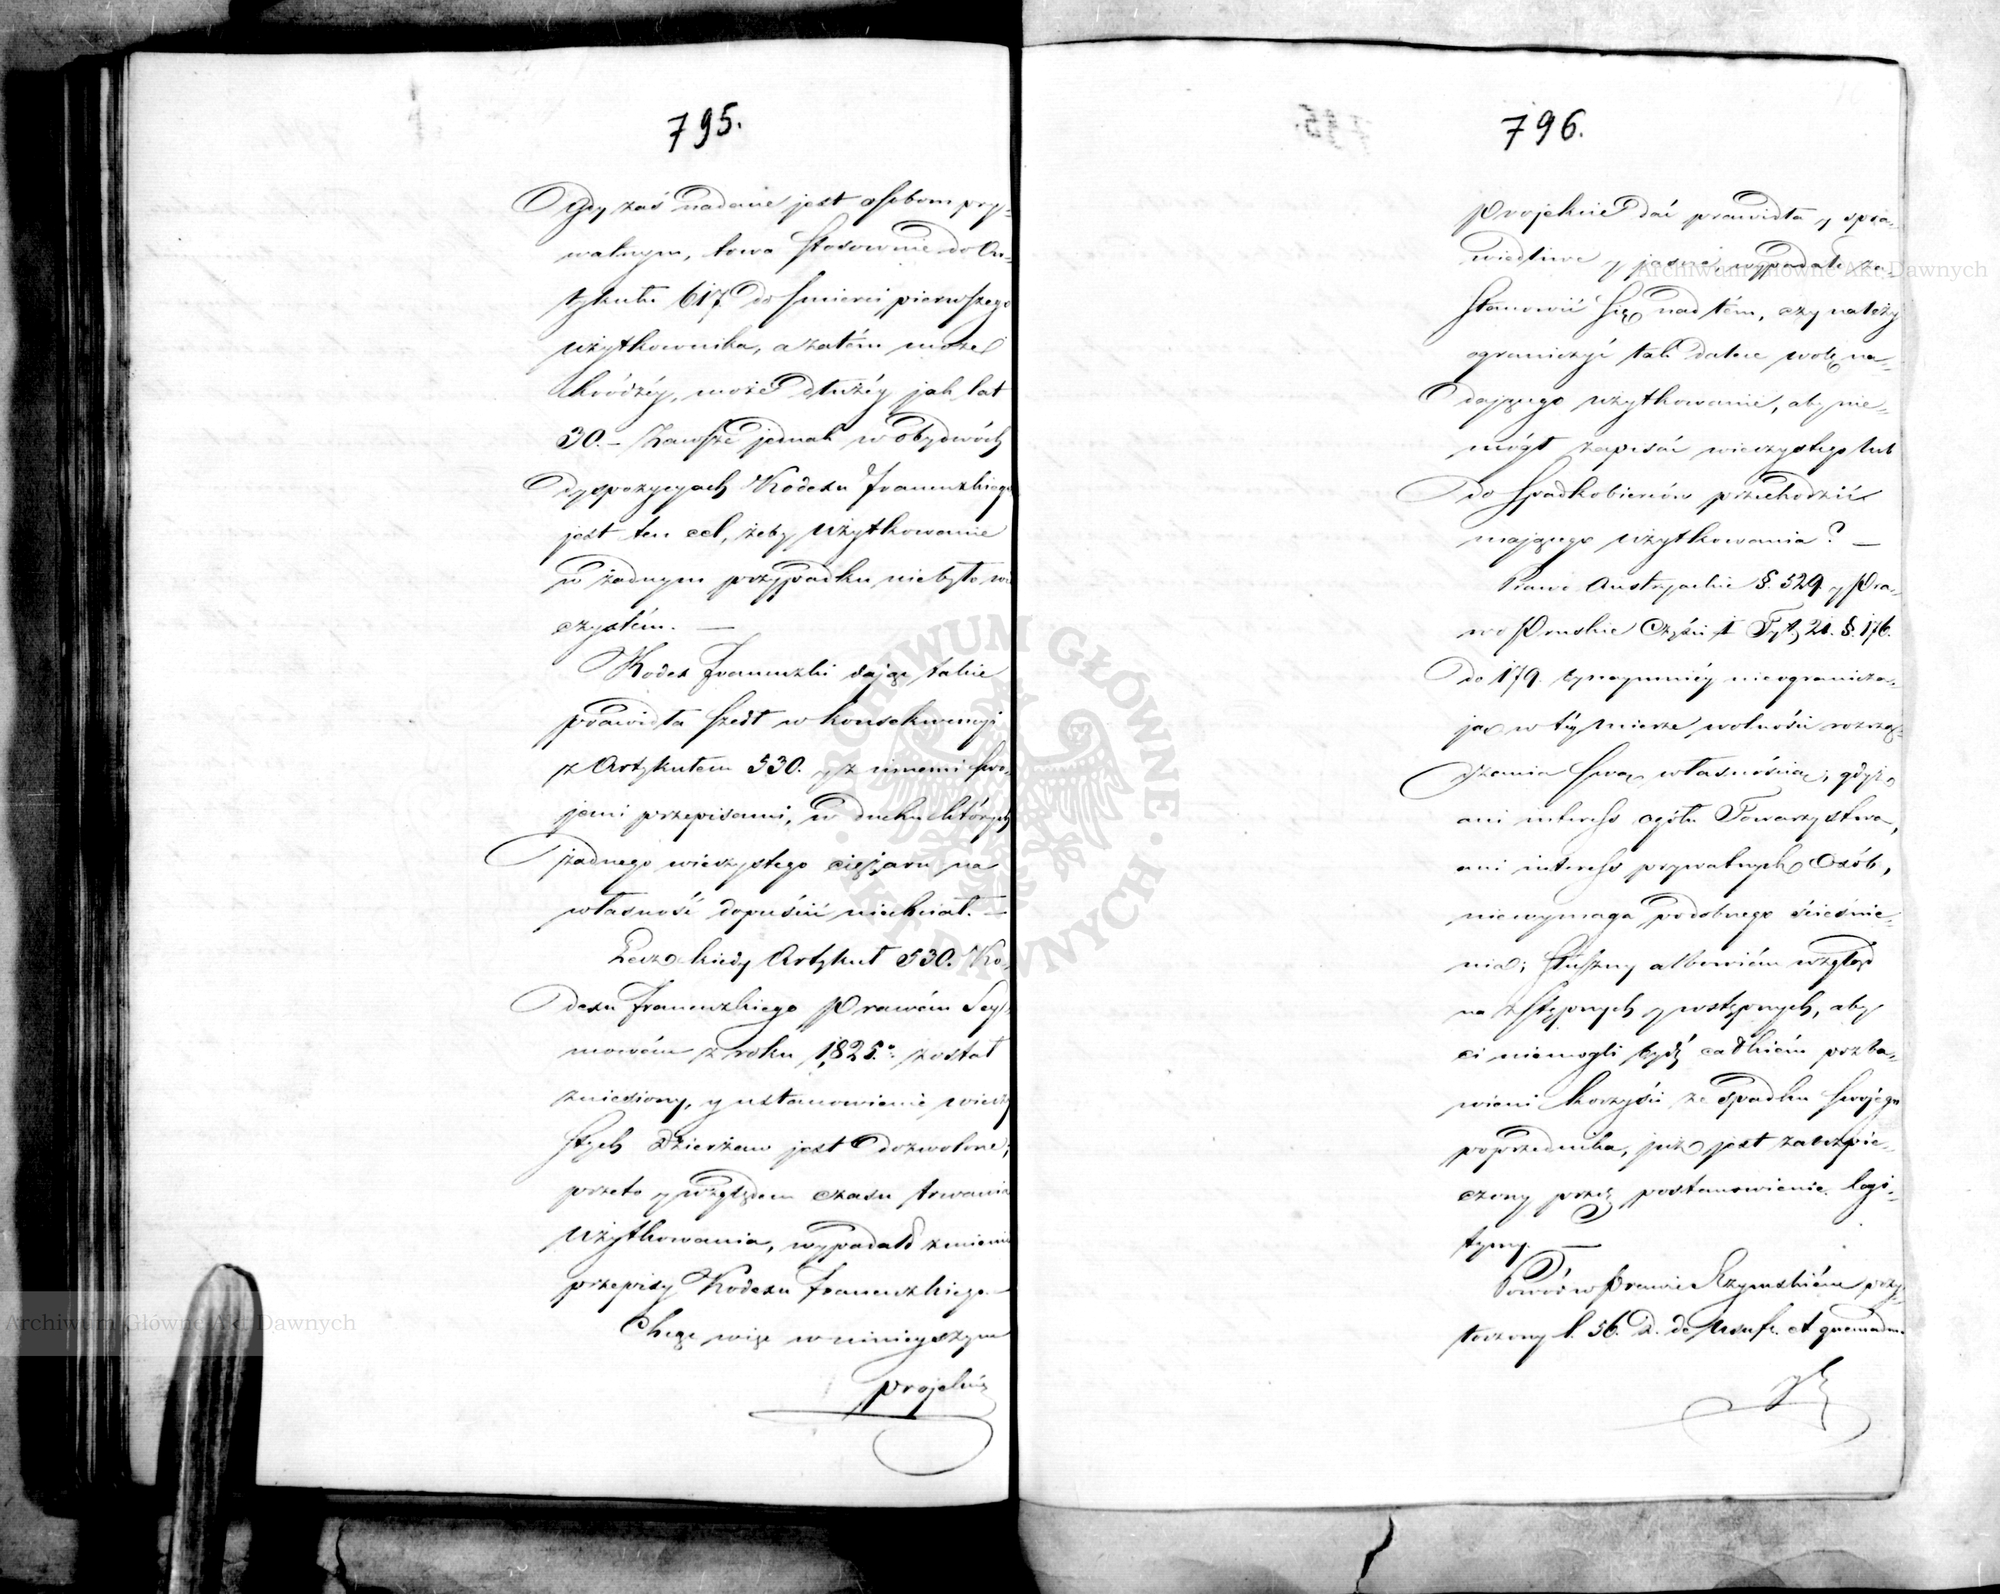 795.
Gdy zaś nadane jest osobom pry-
watnym, trwa stosownie do Ar-
tykułu 617 do śmierci pierwszego
użytkownika, a zatém może
krócéy, może dłużéy jak lat
30. – Zawsze jednak w obydwóch
dyspozycyach Kodexu francuzkiego
jest ten cel, żeby użytkowanie
w żadnym przypadku niebyło wie
czystém. —
Kodex francuzki dając takie
prawidła szedł w konsekwencyi
z Artykułem 530. y z innemi swo-
jemi przepisami, w duchu których
żadnego wieczystego ciężaru na
własność dopuścić niechciał. —
Lecz kiedy Artykuł 530. Ko-
dexu francuzkiego Prawém Sey-
mowém z roku 1825.° został
zniesiony, y ustanowienie wieczy
stych dzierżaw jest dozwolone,
przeto y względem czasu trwania
użytkowania, wypadało zmienić
przepisy Kodexu francuzkiego. –
Chcąc więc w ninieyszym
projekcie
796.
Projekcie dać prawidła y spra-
wiedliwe y jasne, wypadało za
stanowić się nad tém, czy należy
ograniczyć tak dalece wolę na-
dającego użytkowanie, aby nie-
mógł zapisać wieczystego lub
do spadkobierców przechodzić
mającego użytkowania? —
Prawo Austryackie §. 529 y Pra-
wo Pruskie Części I Tyt. 21. §. 176.
do 179. bynaymniéy nieogranicza-
ją w téy mierze wolności rozrzą-
dzania swą własnością; gdyż
ani interess ogółu Towarzystwa,
ani interess prywatnych Osób,
niewymaga podobnego ścieśnie-
nia; słuszny albowiém wzgląd
na zstępnych y wstępnych, aby
ci niemogli bydź całkiém pozba-
wieni korzyści ze spadku swojego
poprzednika, już jest zabezpie-
czony przez postanowienie legi-
tymy. —
Powód w Prawie Rzymskiém przy-
toczony l. 56. D. de Usufr. et quemadm.